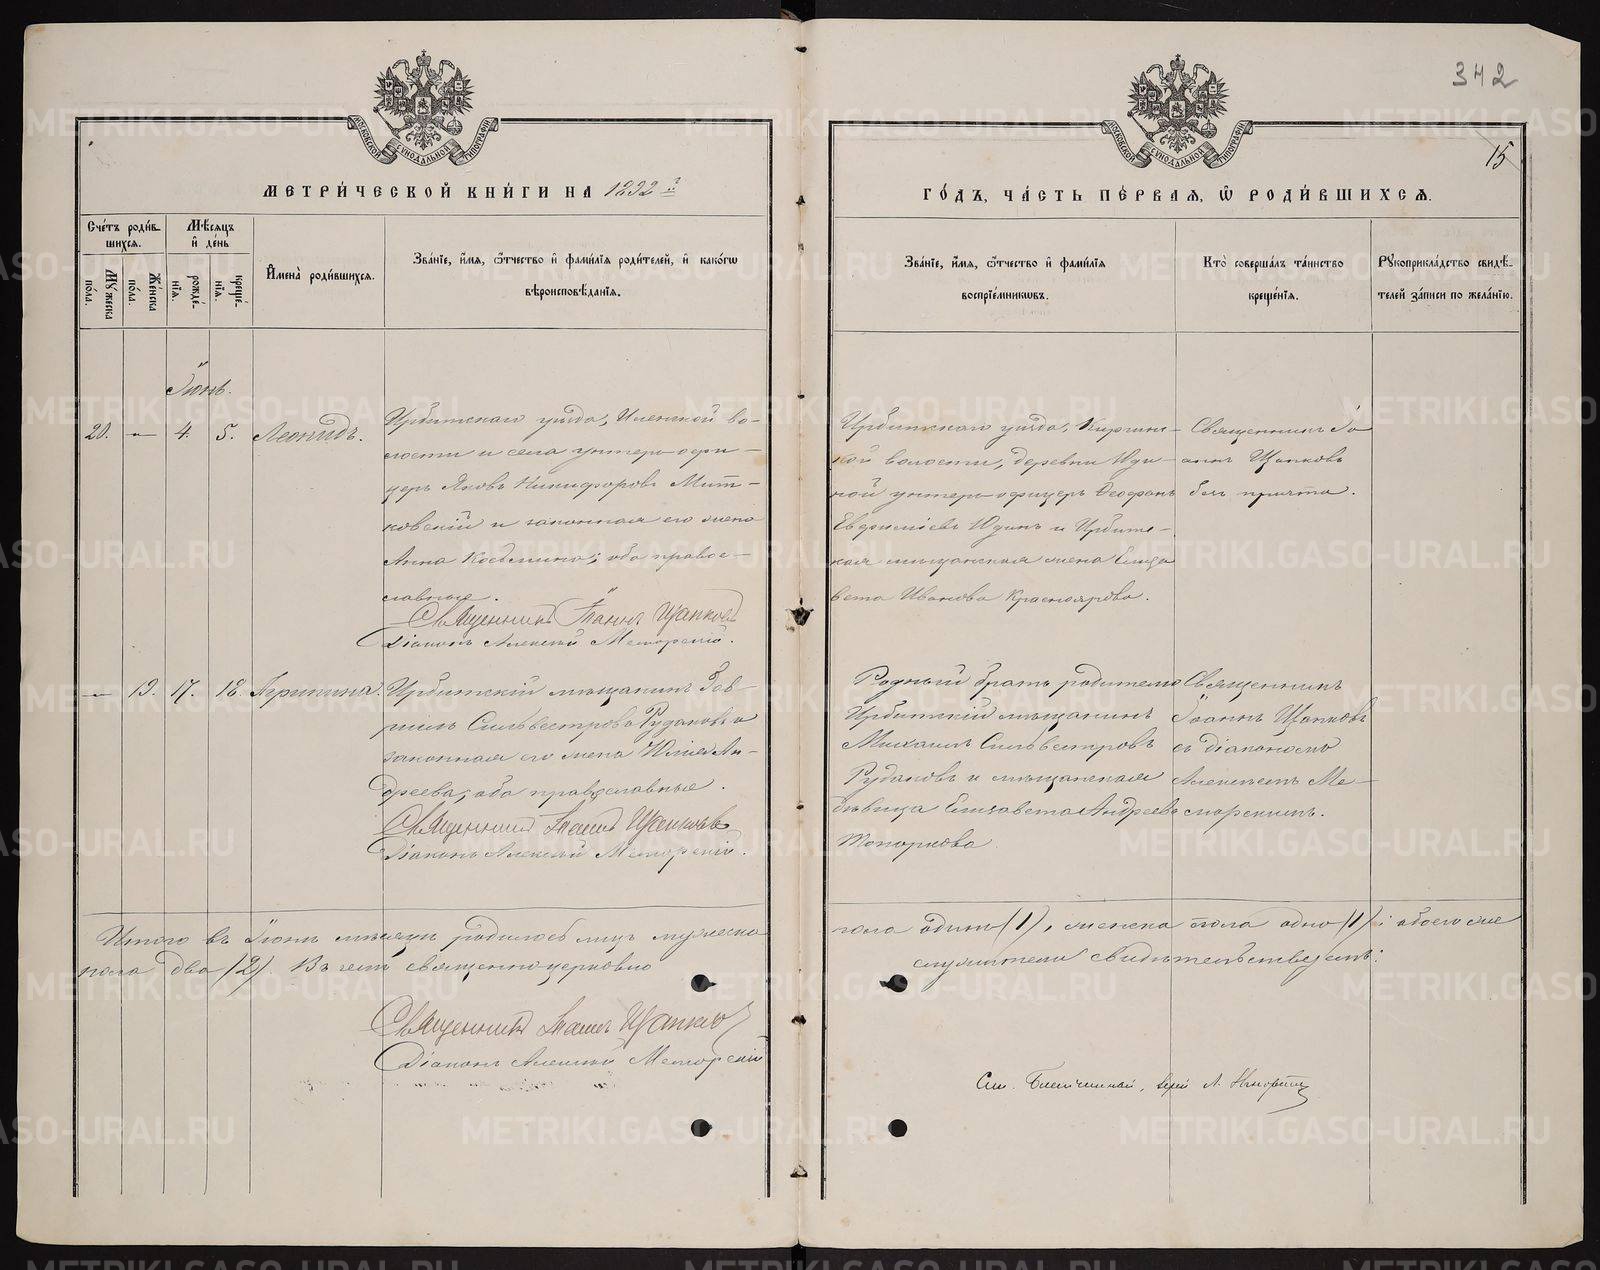 342
15
МОСКОВСКОЙ СѴНОДАЛЬНОЙ ТИПОГРАФІИ
МОСКОВСКОЙ СѴНОДАЛЬНОЙ ТИПОГРАФІИ
МЕТРИ́ЧЕСКОЙ КНИ́ГИ НА 1892 г.
ГО́ДЪ, ЧА́СТЬ ПЕ́РВАЯ, Ѡ РОДИ́ВШИХСЯ.
Сче́тъ роди́вшихся.
Му́жеска по́ла.
Же́нска по́ла.
Мѣ́сяцъ и́ де́нь
рожде́нія.
креще́нія.
И҆мена̀ роди́вшихся.
Зва́ніе, и҆́мя, ѻ҆́тчество и҆ фами́лія роди́телей, и҆ како́гѡ
вѣроисповѣ́данія.
Зва́ніе, и҆́мя, ѻ҆́тчество и҆ фами́лія
воспріе́мникѡвъ.
Кто̀ соверша́лъ та́инство
креще́нія.
Рꙋкоприкла́дство свидѣ́-
телей за́писи по жела́нію.
Іюнь.
20. — 4. 5. Леонидъ.
Ирбитскаго уѣзда, Иленской во-
лости и села унтеръ-офи-
церъ Яковъ Никифоровъ Мит-
ковскій и законная его жена
Анна Косьмина; оба право-
славные.
Священникъ Іоаннъ Щапковъ
Діаконъ Алексій Меморскій.
Ирбитскаго уѣзда, Киргин-
кой волости, деревни Юди-
ной унтеръ-офицеръ Феофанъ
Евфиміевъ Юдинъ и Ирбитс-
кая мѣщанская жена Елиза
вета Иванова Красноярова.
Священникъ Іо
аннъ Щапковъ
безъ причта.
— 19. 17. 18. Агрипина.
Ирбитскій мѣщанинъ Гав-
ріилъ Сильвестровъ Рудаковъ и
законная его жена Юлія Ан-
дреева; оба православные.
Священникъ Іоаннъ Щапковъ
Діаконъ Алексій Меморскій.
Родный братъ родителя
Ирбитскій мѣщанинъ
Михаилъ Сильвестровъ
Рудаковъ и мѣщанская
дѣвица Елизавета Андреева
Топоркова
Священникъ
Іоаннъ Щапковъ
съ діакономъ
Алексіемъ Ме-
морскимъ.
Итого въ Іюнѣ мѣсяцѣ родилось лицъ мужеска
пола одинъ (1), женска пола одно (1); обоего же
пола два (2). Въ чемъ священно-церковно
служители свидѣтельствуемъ:
Священникъ Іоаннъ Щапковъ
Діаконъ Алексій Меморскій
METRIKI.GASO-URAL.RU